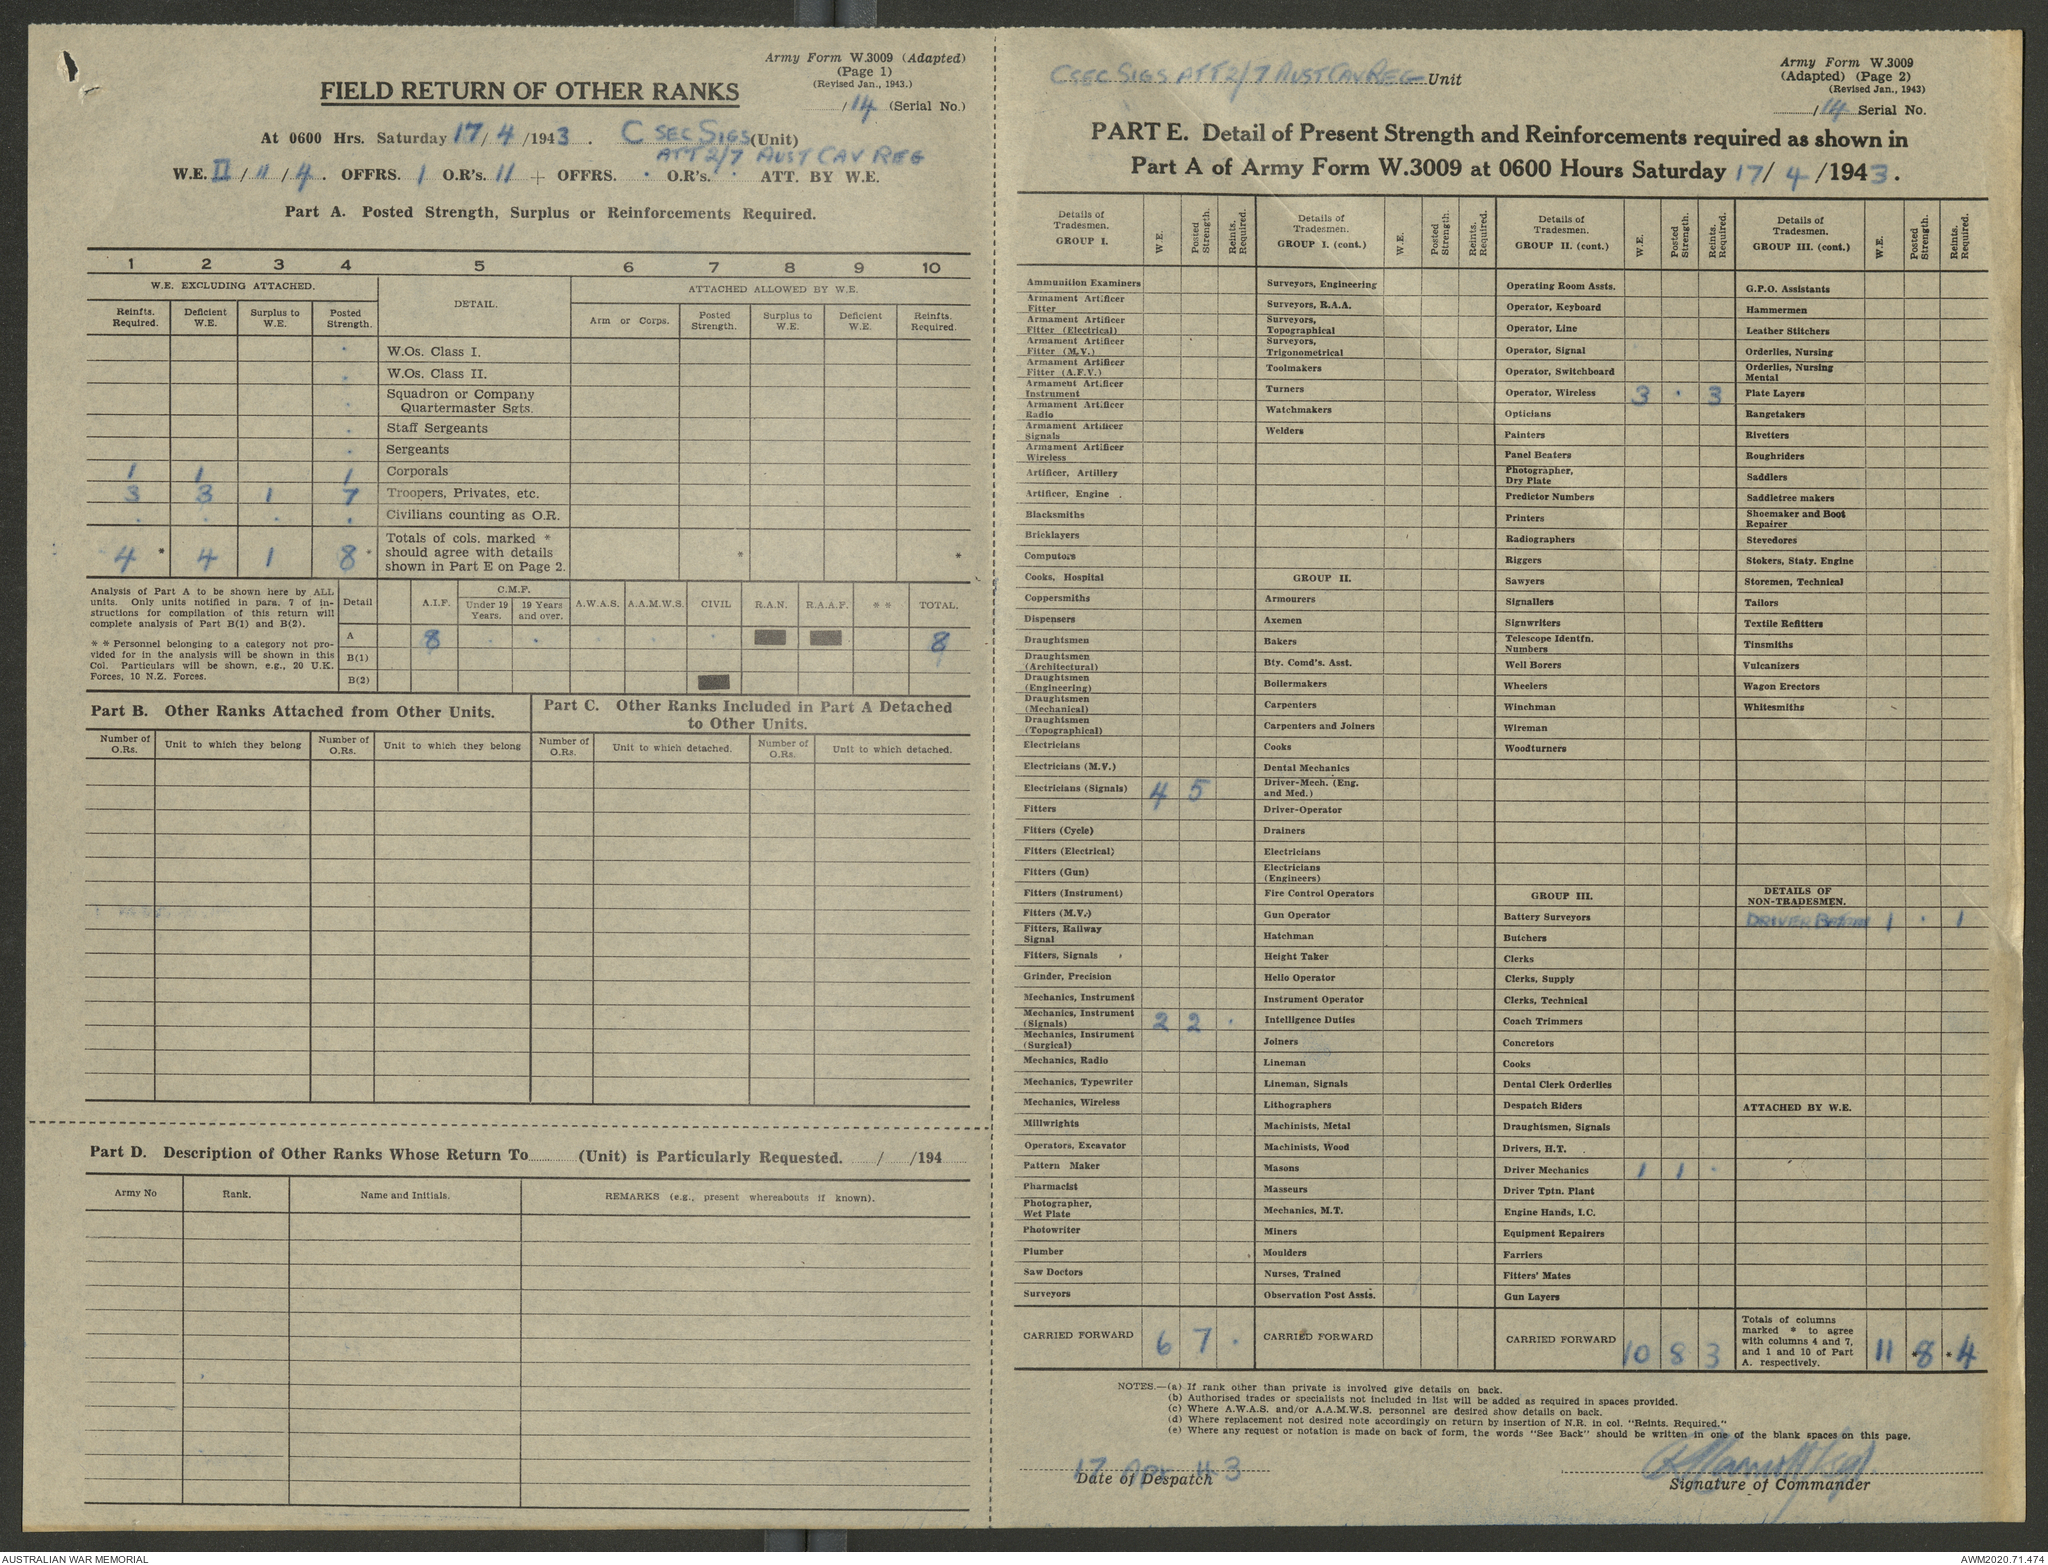 Army Form W.3009 (Adapted)
(Page 1)
(Revised Jan., 1943.)
/14 (Serial No.)
FIELD RETURN OF OTHER RANKS
At 0600 Hrs. Saturday 17/4/1943. C SEC SIGS (Unit)
ATT 2/7 AUST CAV REG
W.E. II/11/4. OFFRS. 1 O.R's. 11 + OFFRS. . O.R's. . ATT. BY W.E.
Part A. Posted Strength, Surplus or Reinforcements Required.
1 2 3 4 5 6 7 8 9 10
W.E. EXCLUDING ATTACHED. DETAIL. ATTACHED ALLOWED BY W.E.
Reinfts. Required. Deficient W.E. Surplus to W.E. Posted Strength. Arm or Corps. Posted Strength. Surplus to W.E. Deficient W.E. Reinfts. Required.
. W.Os. Class I.
. W.Os. Class II.
. Squadron or Company Quartermaster Sgts.
. Staff Sergeants
. Sergeants
1 1 1 Corporals
3 3 1 7 Troopers, Privates, etc.
. . . . Civilians counting as O.R.
4 * 4 1 8 * Totals of cols. marked * should agree with details shown in Part E on Page 2. * *
Analysis of Part A to be shown here by ALL units. Only units notified in para. 7 of instructions for compilation of this return will complete analysis of Part B(1) and B(2).
* * Personnel belonging to a category not provided for in the analysis will be shown in this Col. Particulars will be shown, e.g., 20 U.K. Forces, 10 N.Z. Forces.
Detail A.I.F. C.M.F. Under 19 Years. 19 Years and over. A.W.A.S. A.A.M.W.S. CIVIL R.A.N. R.A.A.F. * * TOTAL.
A 8 . . . . . 8
B(1)
B(2)
Part B. Other Ranks Attached from Other Units.
Part C. Other Ranks Included in Part A Detached to Other Units.
Number of O.Rs. Unit to which they belong Number of O.Rs. Unit to which they belong Number of O.Rs. Unit to which detached. Number of O.Rs. Unit to which detached.
Part D. Description of Other Ranks Whose Return To (Unit) is Particularly Requested. / /194
Army No Rank. Name and Initials. REMARKS (e.g., present whereabouts if known).
C SEC SIGS ATT 2/7 AUST CAV REG Unit
Army Form W.3009
(Adapted) (Page 2)
(Revised Jan., 1943)
/14 Serial No.
PART E. Detail of Present Strength and Reinforcements required as shown in
Part A of Army Form W.3009 at 0600 Hours Saturday 17/4/1943.
Details of Tradesmen. GROUP I. W.E. Posted Strength. Reints. Required.
Ammunition Examiners
Armament Artificer Fitter
Armament Artificer Fitter (Electrical)
Armament Artificer Fitter (M.V.)
Armament Artificer Fitter (A.F.V.)
Armament Artificer Instrument
Armament Artificer Radio
Armament Artificer Signals
Armament Artificer Wireless
Artificer, Artillery
Artificer, Engine
Blacksmiths
Bricklayers
Computors
Cooks, Hospital
Coppersmiths
Dispensers
Draughtsmen
Draughtsmen (Architectural)
Draughtsmen (Engineering)
Draughtsmen (Mechanical)
Draughtsmen (Topographical)
Electricians
Electricians (M.V.)
Electricians (Signals) 4 5
Fitters
Fitters (Cycle)
Fitters (Electrical)
Fitters (Gun)
Fitters (Instrument)
Fitters (M.V.)
Fitters, Railway Signal
Fitters, Signals
Grinder, Precision
Mechanics, Instrument
Mechanics, Instrument (Signals) 2 2 .
Mechanics, Instrument (Surgical)
Mechanics, Radio
Mechanics, Typewriter
Mechanics, Wireless
Millwrights
Operators, Excavator
Pattern Maker
Pharmacist
Photographer, Wet Plate
Photowriter
Plumber
Saw Doctors
Surveyors
CARRIED FORWARD 6 7 .
Details of Tradesmen. GROUP I. (cont.) W.E. Posted Strength. Reints. Required.
Surveyors, Engineering
Surveyors, R.A.A.
Surveyors, Topographical
Surveyors, Trigonometrical
Toolmakers
Turners
Watchmakers
Welders
GROUP II.
Armourers
Axemen
Bakers
Bty. Comd's. Asst.
Boilermakers
Carpenters
Carpenters and Joiners
Cooks
Dental Mechanics
Driver-Mech. (Eng. and Med.)
Driver-Operator
Drainers
Electricians
Electricians (Engineers)
Fire Control Operators
Gun Operator
Hatchman
Height Taker
Hello Operator
Instrument Operator
Intelligence Duties
Joiners
Lineman
Lineman, Signals
Lithographers
Machinists, Metal
Machinists, Wood
Masons
Masseurs
Mechanics, M.T.
Miners
Moulders
Nurses, Trained
Observation Post Assts.
CARRIED FORWARD
Details of Tradesmen. GROUP II. (cont.) W.E. Posted Strength. Reints. Required.
Operating Room Assts.
Operator, Keyboard
Operator, Line
Operator, Signal
Operator, Switchboard
Operator, Wireless 3 . 3
Opticians
Painters
Panel Beaters
Photographer, Dry Plate
Predictor Numbers
Printers
Radiographers
Riggers
Sawyers
Signallers
Signwriters
Telescope Identfn. Numbers
Well Borers
Wheelers
Winchman
Wireman
Woodturners
GROUP III.
Battery Surveyors
Butchers
Clerks
Clerks, Supply
Clerks, Technical
Coach Trimmers
Concretors
Cooks
Dental Clerk Orderlies
Despatch Riders
Draughtsmen, Signals
Drivers, H.T.
Driver Mechanics 1 1 .
Driver Tptn. Plant
Engine Hands, I.C.
Equipment Repairers
Farriers
Fitters' Mates
Gun Layers
CARRIED FORWARD 10 8 3
Details of Tradesmen. GROUP III. (cont.) W.E. Posted Strength. Reints. Required.
G.P.O. Assistants
Hammermen
Leather Stitchers
Orderlies, Nursing
Orderlies, Nursing Mental
Plate Layers
Rangetakers
Rivetters
Roughriders
Saddlers
Saddletree makers
Shoemaker and Boot Repairer
Stevedores
Stokers, Staty. Engine
Storemen, Technical
Tailors
Textile Refitters
Tinsmiths
Vulcanizers
Wagon Erectors
Whitesmiths
DETAILS OF NON-TRADESMEN.
DRIVER BATMAN 1 . 1
ATTACHED BY W.E.
Totals of columns marked * to agree with columns 4 and 7, and 1 and 10 of Part A. respectively. 11 *8 *4
NOTES.—(a) If rank other than private is involved give details on back.
(b) Authorised trades or specialists not included in list will be added as required in spaces provided.
(c) Where A.W.A.S. and/or A.A.M.W.S. personnel are desired show details on back.
(d) Where replacement not desired note accordingly on return by insertion of N.R. in col. "Reints. Required."
(e) Where any request or notation is made on back of form, the words "See Back" should be written in one of the blank spaces on this page.
17 APR 43
Date of Despatch
Signature of Commander
AUSTRALIAN WAR MEMORIAL
AWM2020.71.474